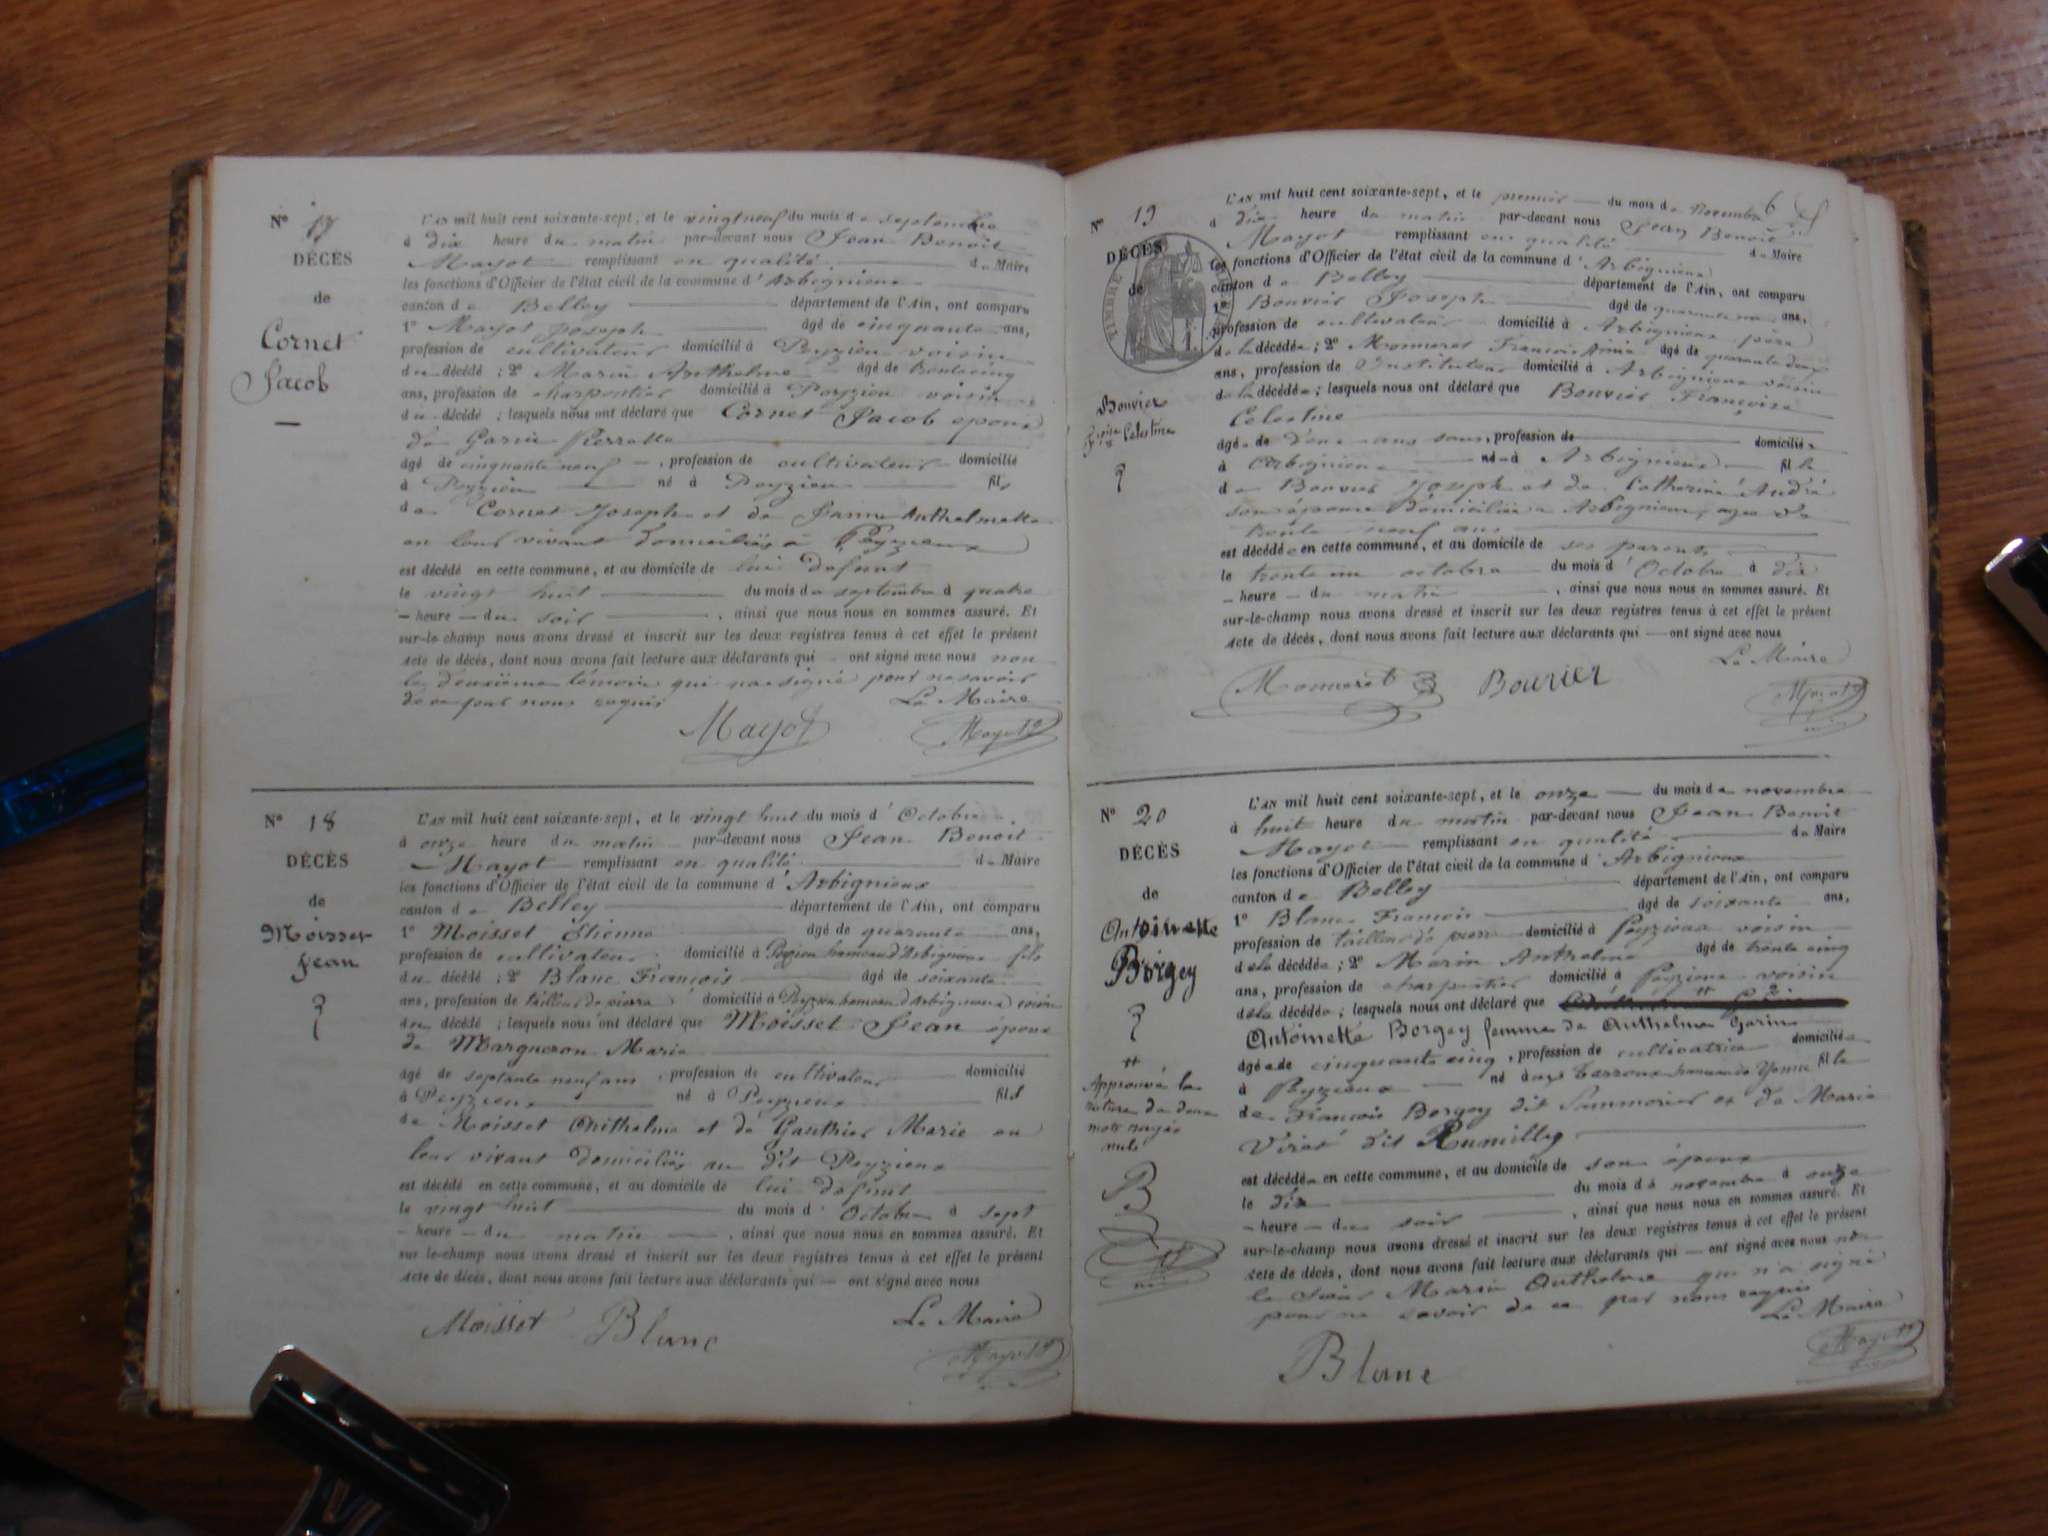 N° 17
DÉCÈS
de
Cornet
Jacob
L'AN mil huit cent soixante-sept, et le vingt neuf du mois de septembre
à dix heure du matin par-devant nous Jean Benoit
Mayot remplissant en qualité de Maire
les fonctions d'Officier de l'état civil de la commune d'Arbignieux
canton de Belley département de l'Ain, ont comparu
1° Mayot joseph âgé de cinquante ans,
profession de cultivateur domicilié à Peyzieu voisin
du décédé ; 2° Marin Anthelme âgé de trente cinq
ans, profession de charpentier domicilié à Peyzieu voisin
du décédé ; lesquels nous ont déclaré que Cornet Jacob epoux
de Garin Pierrette
âgé de cinquante neuf , profession de cultivateur domicilié
à Peyzieu né à Peyzieu fils
de Cornet Joseph et de Jeanne Anthelmette
en leur vivant domiciliés à Peyzieux
est décédé en cette commune, et au domicile de lui defunt
le vingt huit du mois de septembre à quatre
heure du soir , ainsi que nous nous en sommes assuré. Et
sur-le-champ nous avons dressé et inscrit sur les deux registres tenus à cet effet le présent
acte de décès, dont nous avons fait lecture aux déclarants qui ont signé avec nous non
le deuxième témoin qui n'a signé pour ne savoir
de ce par nous requis Le Maire
Mayot Mayot
N° 18
DÉCÈS
de
Moisset
Jean
L'AN mil huit cent soixante-sept, et le vingt huit du mois d'Octobre
à onze heure du matin par-devant nous Jean Benoit
Mayot remplissant en qualité de Maire
les fonctions d'Officier de l'état civil de la commune d'Arbignieux
canton de Belley département de l'Ain, ont comparu
1° Moisset Etienne âgé de quarante ans,
profession de cultivateur domicilié à Peyzieu hameau d'Arbignieux fils
du décédé ; 2° Blanc François âgé de soixante
ans, profession de tailleur de pierre domicilié à Peyzieu hameau d'Arbignieux voisin
du décédé ; lesquels nous ont déclaré que Moisset Jean époux
de Margueron Marie
âgé de septante neuf ans , profession de cultivateur domicilié
à Peyzieux né à Peyzieux fils
de Moisset Anthelme et de Gauthier Marie en
leur vivant domiciliés au dit Peyzieux
est décédé en cette commune, et au domicile de lui defunt
le vingt huit du mois d'Octobre à sept
heure du matin , ainsi que nous nous en sommes assuré. Et
sur-le-champ nous avons dressé et inscrit sur les deux registres tenus à cet effet le présent
acte de décès, dont nous avons fait lecture aux déclarants qui ont signé avec nous
Moisset Blanc Le Maire
Mayot
6
N° 19
DÉCÈS
de
TIMBRE
Bouvier
Celestine
L'AN mil huit cent soixante-sept, et le premier du mois de novembre
à dix heure du matin par-devant nous Jean Benoit
Mayot remplissant en qualité de Maire
les fonctions d'Officier de l'état civil de la commune d'Arbignieux
canton de Belley département de l'Ain, ont comparu
1° Bouvier Joseph âgé de quarante ans,
profession de cultivateur domicilié à Arbignieux père
de la décédée ; 2° Monneret François âgé de quarante deux
ans, profession de Instituteur domicilié à Arbignieux voisin
de la décédée ; lesquels nous ont déclaré que Bouvier Françoise
Celestine
âgée de deux ans , profession de domiciliée
à Arbignieux née à Arbignieux fille
de Bouvier Joseph et de Catherine André
son épouse domiciliée à Arbignieux, agée de
trente neuf ans
est décédée en cette commune, et au domicile de ses parents
le trente un octobre du mois d'Octobre à dix
heure du matin , ainsi que nous nous en sommes assuré. Et
sur-le-champ nous avons dressé et inscrit sur les deux registres tenus à cet effet le présent
acte de décès, dont nous avons fait lecture aux déclarants qui ont signé avec nous
Le Maire
Monneret Bouvier Mayot
N° 20
DÉCÈS
de
Antoinette
Borgey
Approuvé la
rature de deux
mots rayés
nuls
B
L'AN mil huit cent soixante-sept, et le onze du mois de novembre
à huit heure du matin par-devant nous Jean Benoit
Mayot remplissant en qualité de Maire
les fonctions d'Officier de l'état civil de la commune d'Arbignieux
canton de Belley département de l'Ain, ont comparu
1° Blanc François âgé de soixante ans,
profession de tailleur de pierre domicilié à Peyzieux voisin
de la décédée ; 2° Marin Anthelme âgé de trente cinq
ans, profession de charpentier domicilié à Peyzieux voisin
de la décédée ; lesquels nous ont déclaré que
Antoinette Borgey femme de Anthelme Garin
âgée de cinquante cinq , profession de cultivatrice domiciliée
à Peyzieux né hameau fille
de François Borgey dit et de Marie
Virat dit Rumilly
est décédée en cette commune, et au domicile de son époux
le dix du mois de novembre à onze
heure du soir , ainsi que nous nous en sommes assuré. Et
sur-le-champ nous avons dressé et inscrit sur les deux registres tenus à cet effet le présent
acte de décès, dont nous avons fait lecture aux déclarants qui ont signé avec nous non
le sieur Marin Anthelme qui n'a signé
pour ne savoir de ce par nous requis
Le Maire
Blanc Mayot